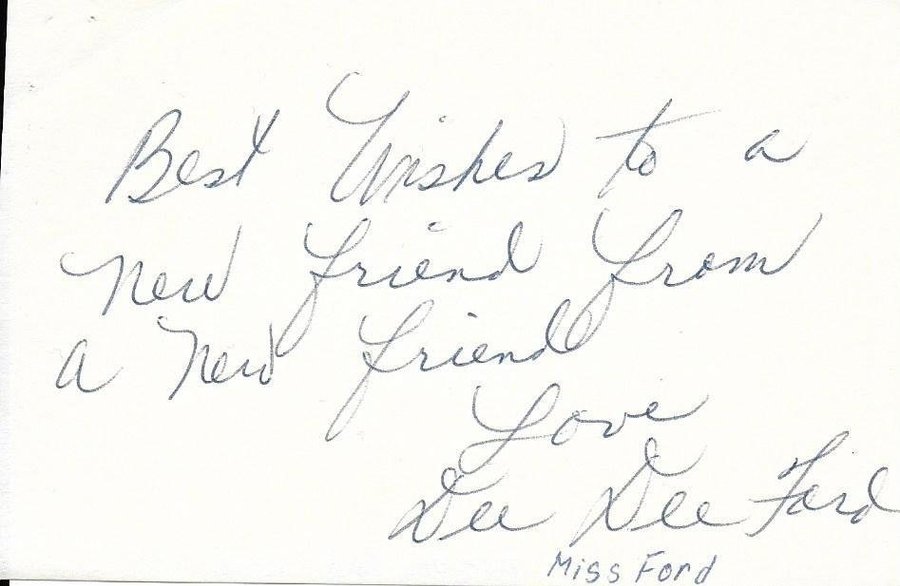 Best Wishes to a
New Friend From
a New Friend
Love
Dee Dee Ford
Miss Ford